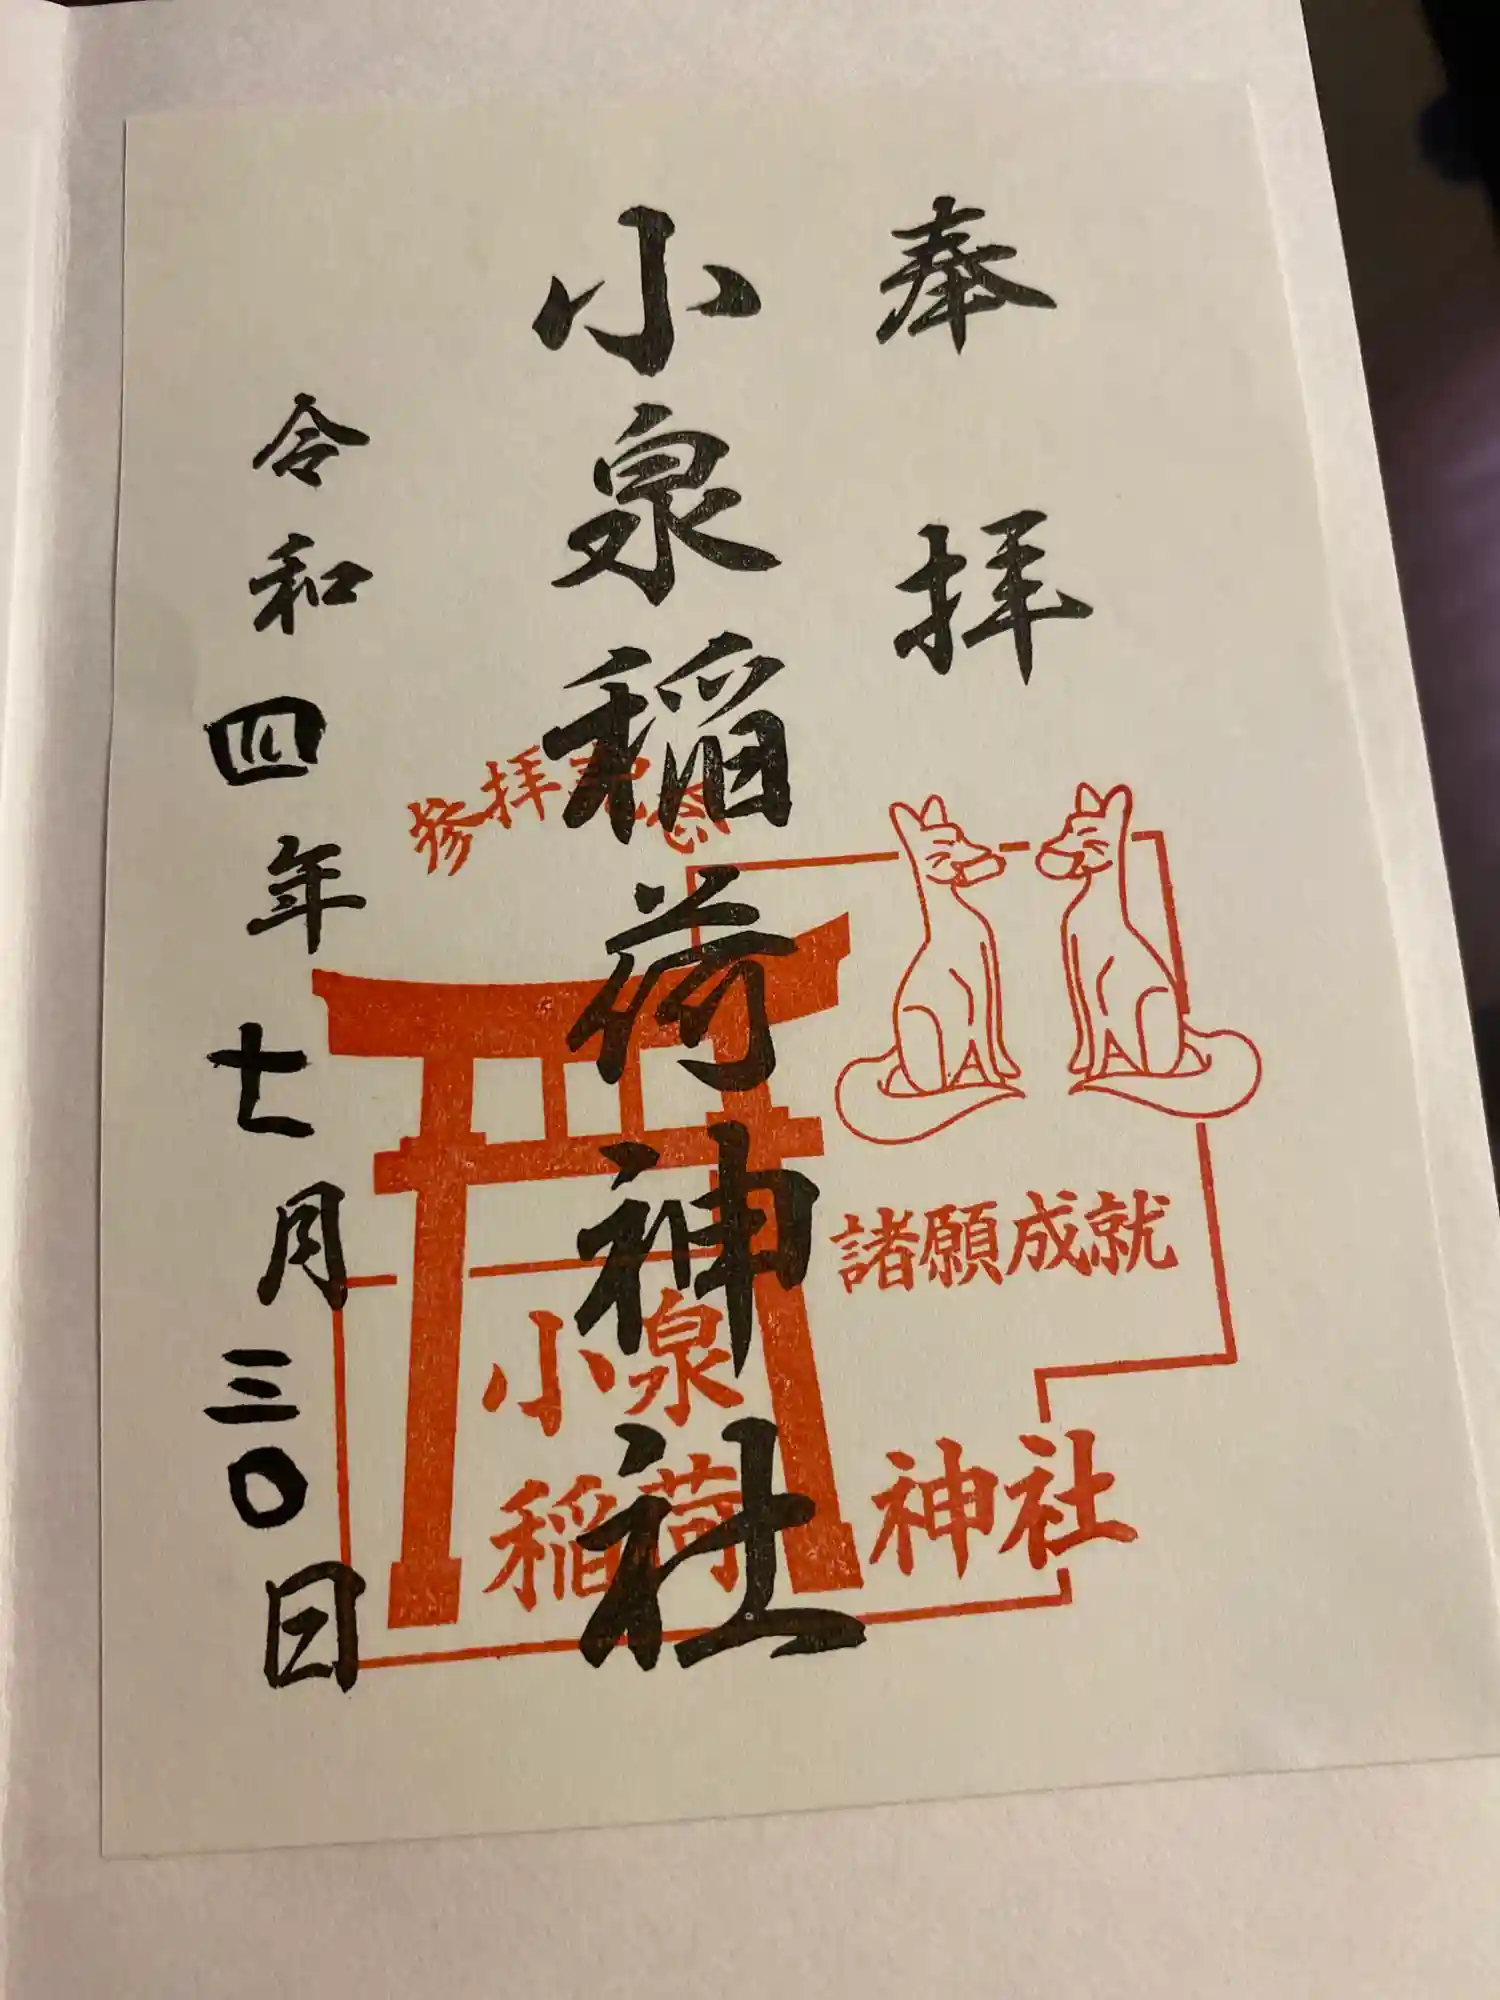 奉拝
小泉稲荷神社
令和四年七月三〇日
参拝記念
諸願成就
小泉
稲荷神社